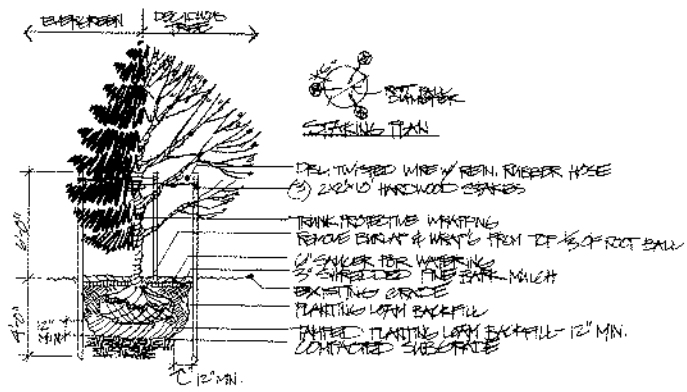 EVERGREEN
DECIDUOUS
TREE
ROOT BALL
DIAMETER
STAKING PLAN
DBL. TWISTED WIRE W/ REIN. RUBBER HOSE
(3) 2"X2"X10' HARDWOOD STAKES
TRUNK PROTECTIVE WRAPPING
REMOVE BURLAP & WRAP'G FROM TOP 1/3 OF ROOT BALL
6" SAUCER FOR WATERING
3" SHREDDED PINE BARK MULCH
EXISTING GRADE
PLANTING LOAM BACKFILL
TAMPED PLANTING LOAM BACKFILL - 12" MIN.
COMPACTED SUBGRADE
6'-0"
4'-0"
MIN.
12" MIN.